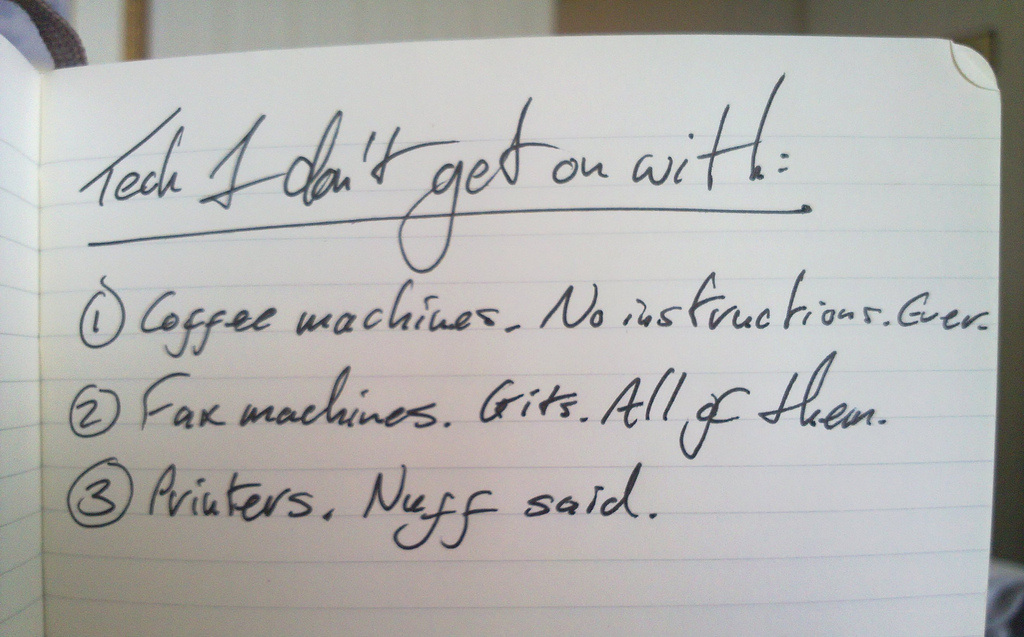 Tech I don't get on with:
① Coffee machines. No instructions. Ever.
② Fax machines. Gits. All of them.
③ Printers. Nuff said.